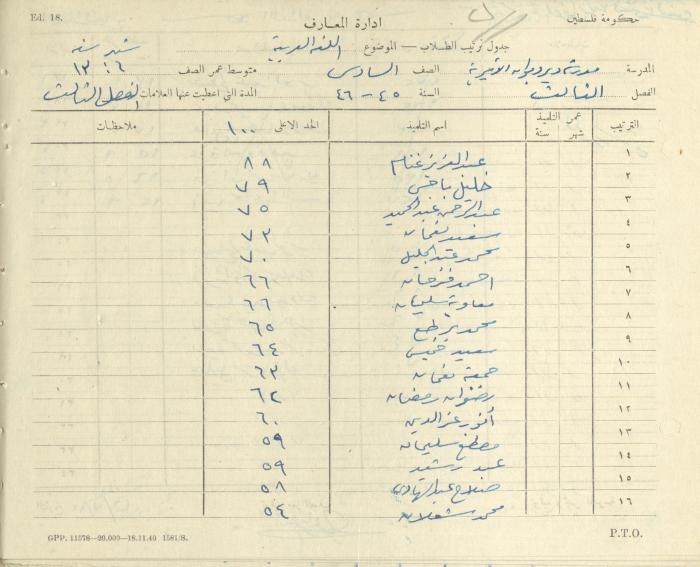 Ed. 18.
حكومة فلسطين
ادارة المعارف
جدول ترتيب الطلاب — الموضوع اللغة العربية
شهر سنة
المدرسة الاميرية الصف السادس متوسط عمر الصف ٦ : ١٣
الفصل الثالث السنة ٤٥ - ٤٦ المدة التي اعطيت عنها العلامات الفصل الثالث
الترتيب عمر التلميذ شهر سنة اسم التلميذ الحد الاعلى ١٠٠ ملاحظات
١ عبد العزيز غنام ٨٨
٢ خليل ٧٩
٣ عبد الرحمن عبد الحميد ٧٥
٤ سعيد نعمان ٧٣
٥ محمد عبد الجليل ٧٠
٦ احمد فرحان ٦٦
٧ معاوية سليمان ٦٦
٨ محمد ٦٥
٩ سعيد خميس ٦٤
١٠ جمعة نعمان ٦٣
١١ رضوان رمضان ٦٢
١٢ أنور عز الدين ٦٠
١٣ مصطفى سليمان ٥٩
١٤ عبد رشيد ٥٩
١٥ صلاح عبد الهادي ٥٨
١٦ محمد شعلان ٥٤
GPP. 11578—20,000—18.11.40 1581/8.
P.T.O.